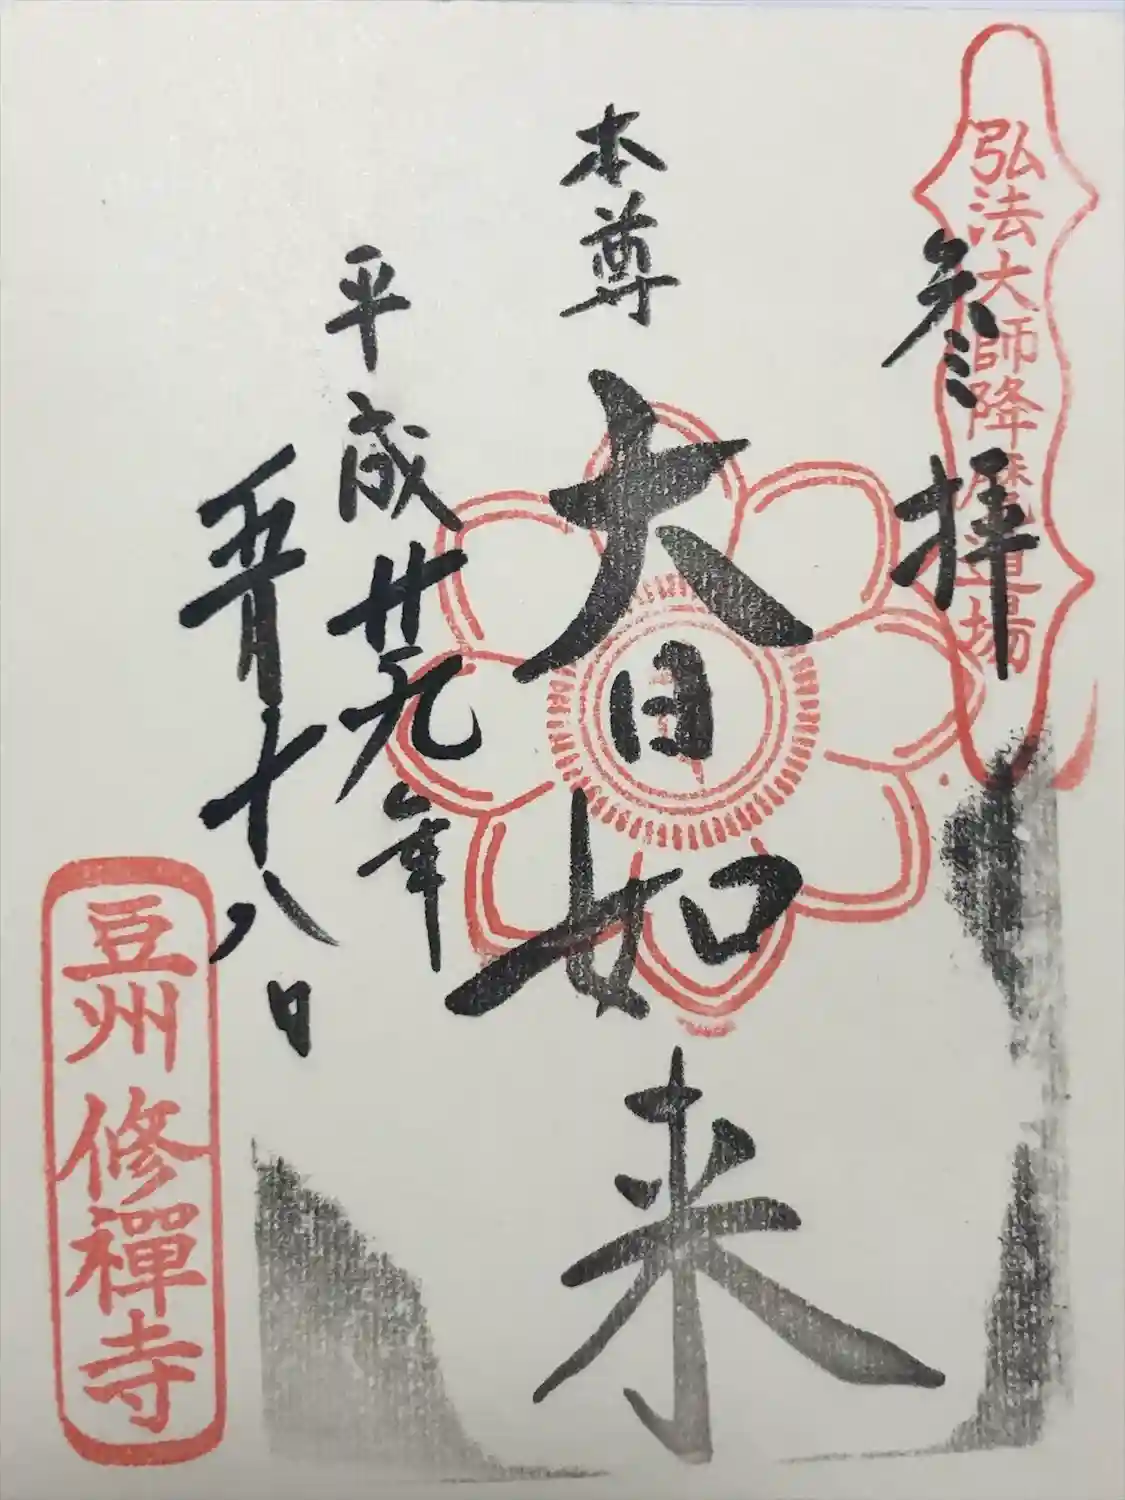 弘法大師降魔道場
参拝
本尊
大日如来
平成廿九年
五月十八日
豆州修禪寺